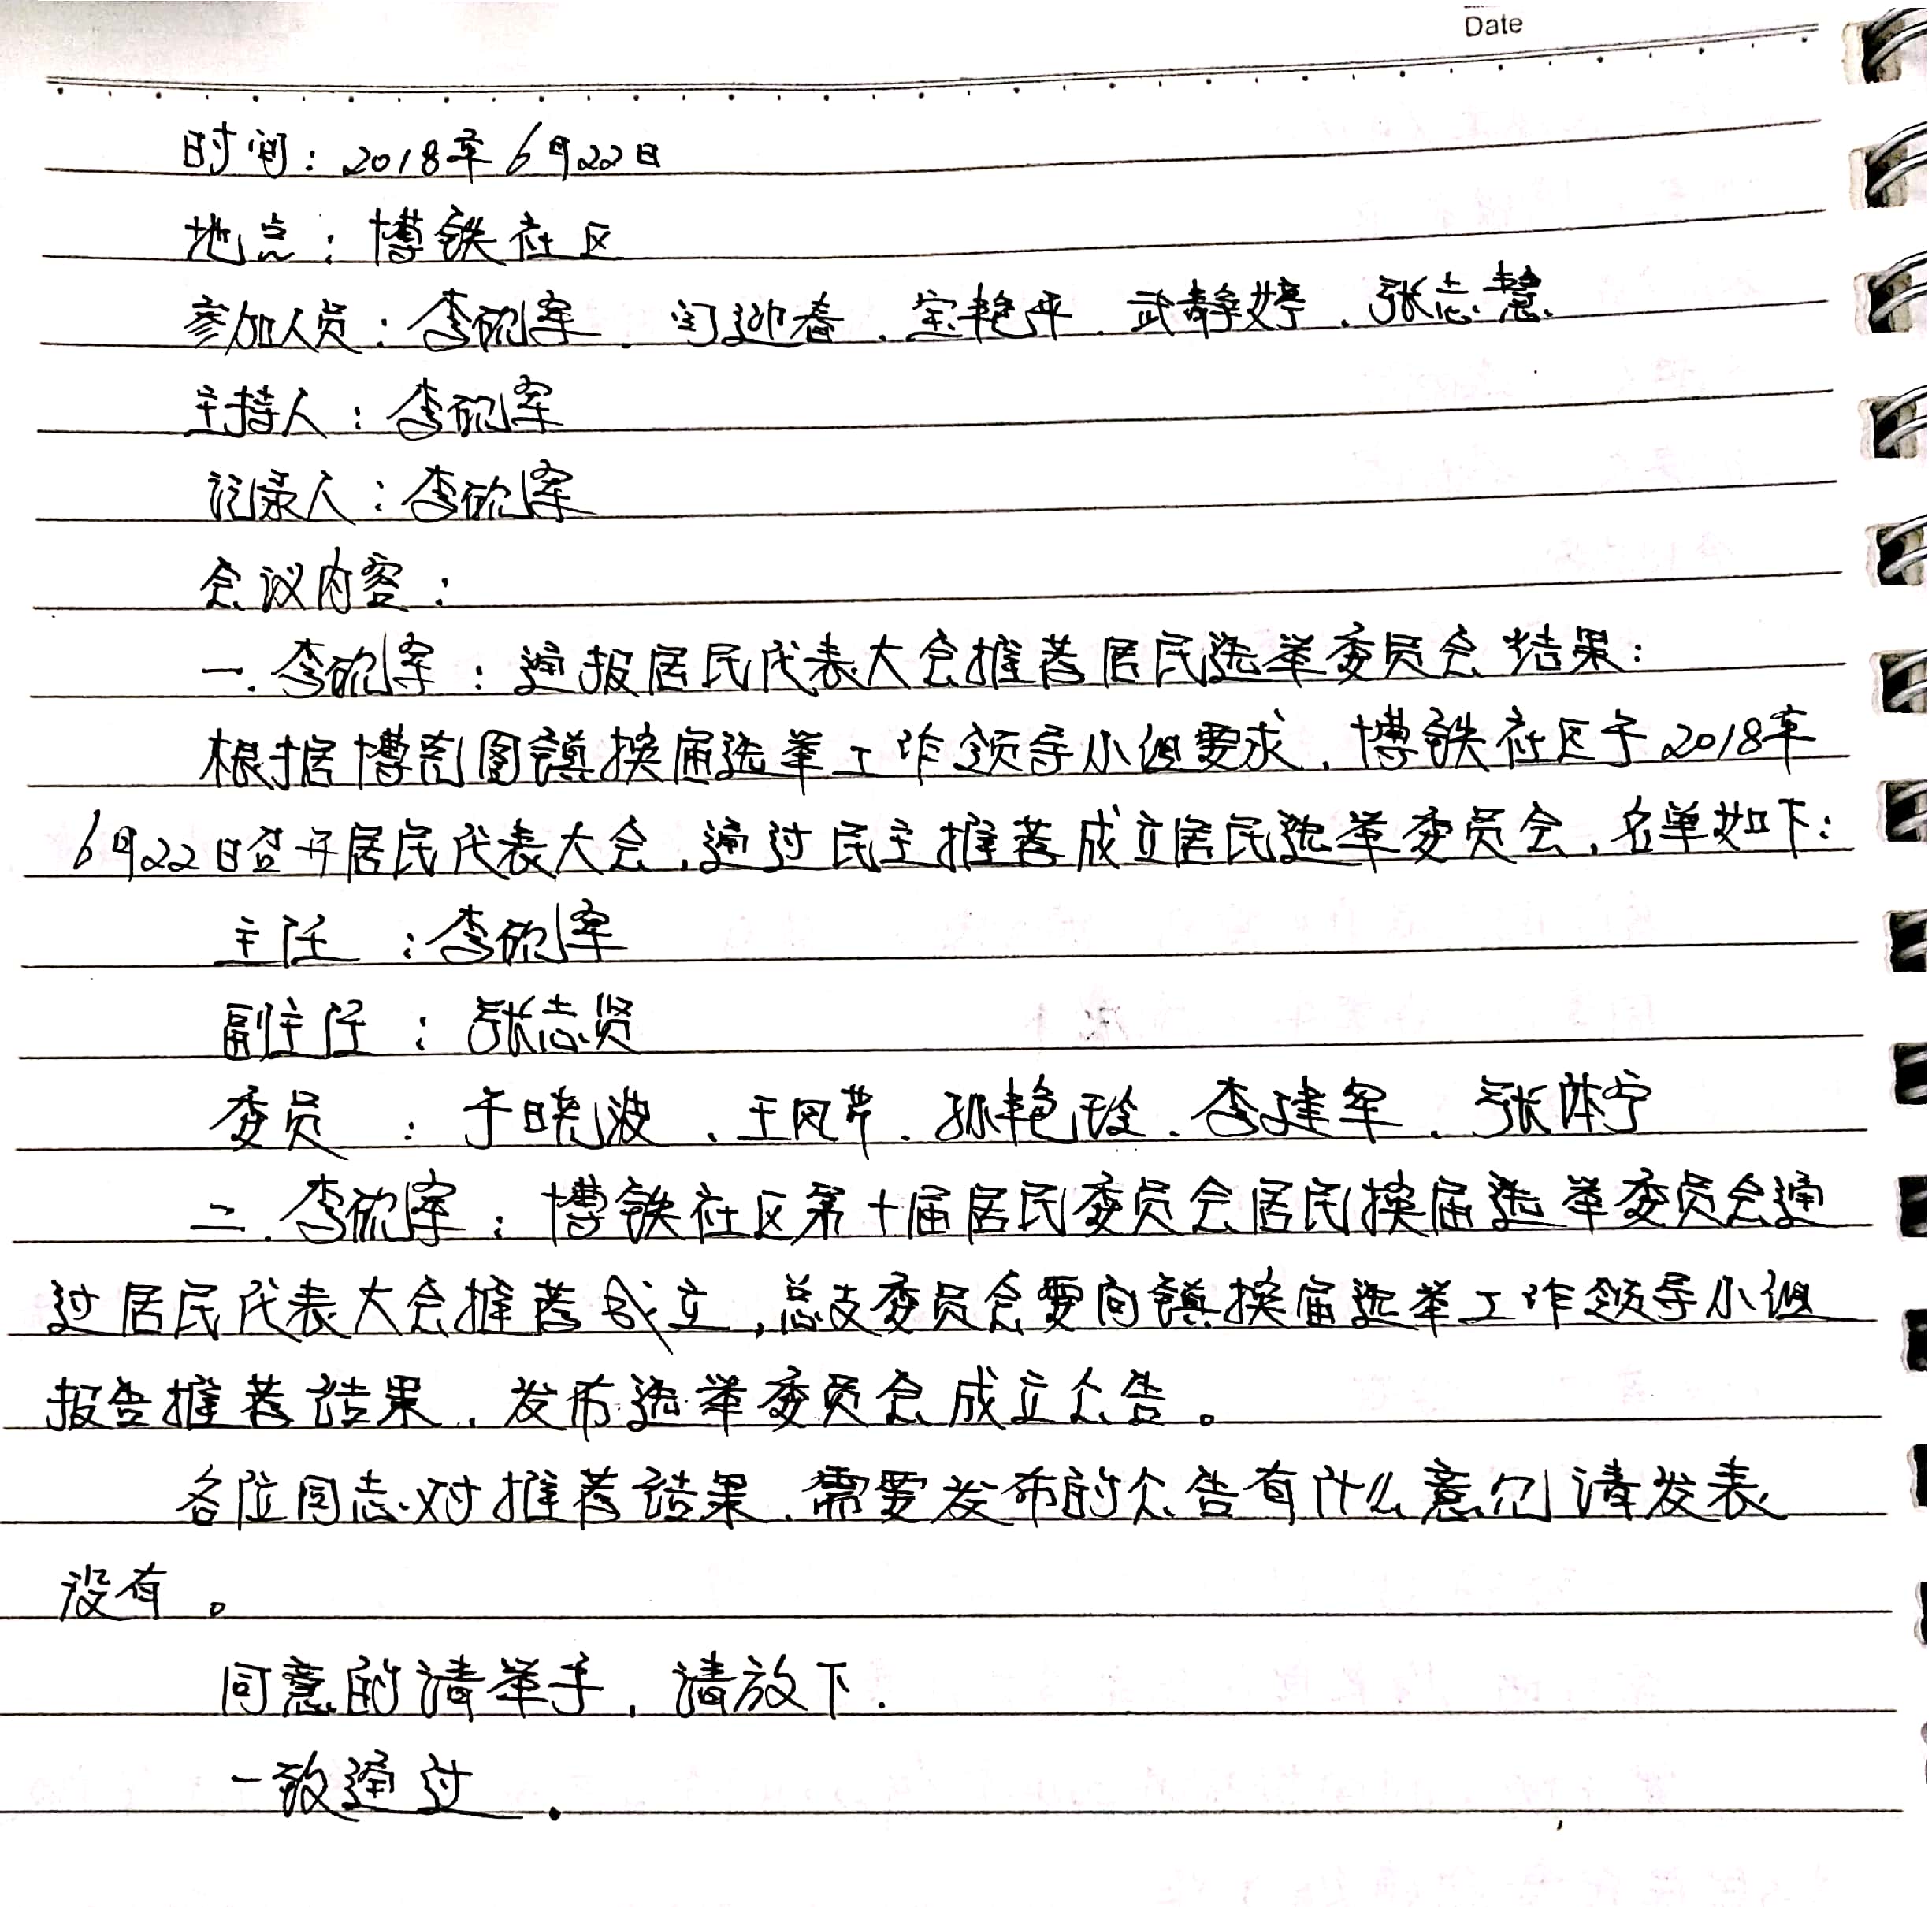 Date
时间：2018年6月22日
地点：博铁社区
参加人员：李砚军、门迎春、宝艳平、武静婷、张志慧
主持人：李砚军
记录人：李砚军
会议内容：
一.李砚军：通报居民代表大会推荐居民选举委员会结果：
根据博克图镇换届选举工作领导小组要求，博铁社区于2018年
6月22日召开居民代表大会，通过民主推荐成立居民选举委员会，名单如下：
主任：李砚军
副主任：张志贤
委员：于晓波、王凤芹、孙艳玲、李建军、张体宁
二.李砚军：博铁社区第十届居民委员会居民换届选举委员会通
过居民代表大会推荐成立，总支委员会要向镇换届选举工作领导小组
报告推荐结果，发布选举委员会成立公告。
各位同志对推荐结果、需要发布的公告有什么意见请发表
没有。
同意的请举手，请放下.
一致通过.